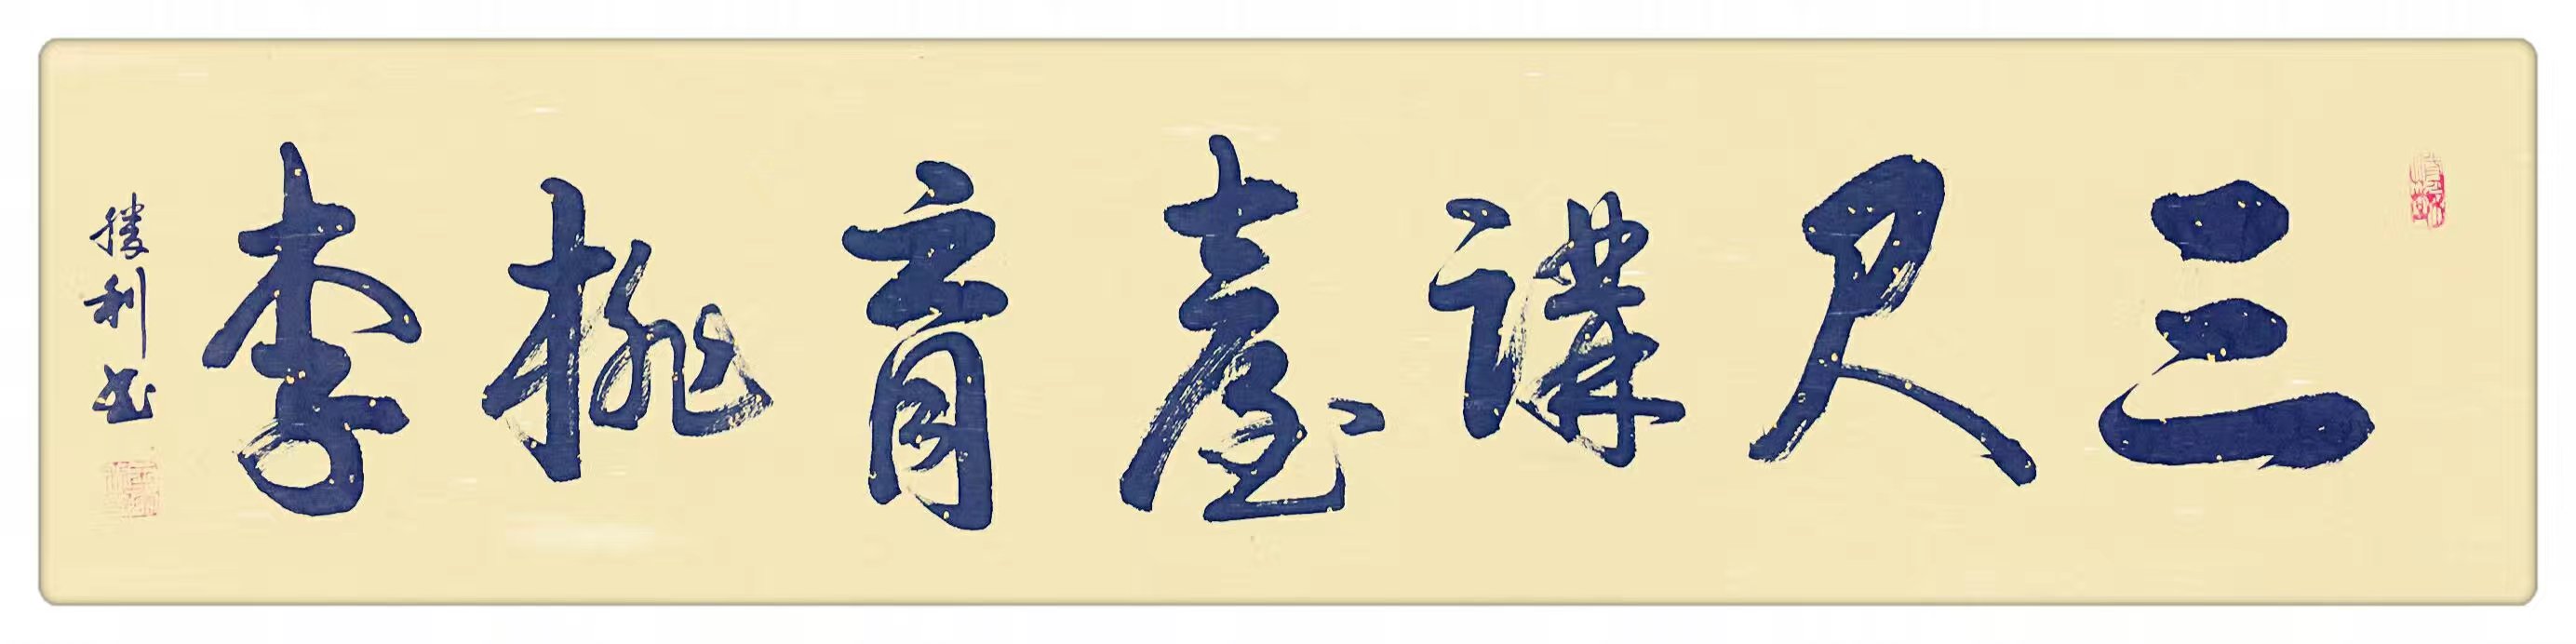 三尺講臺育桃李
勝利書